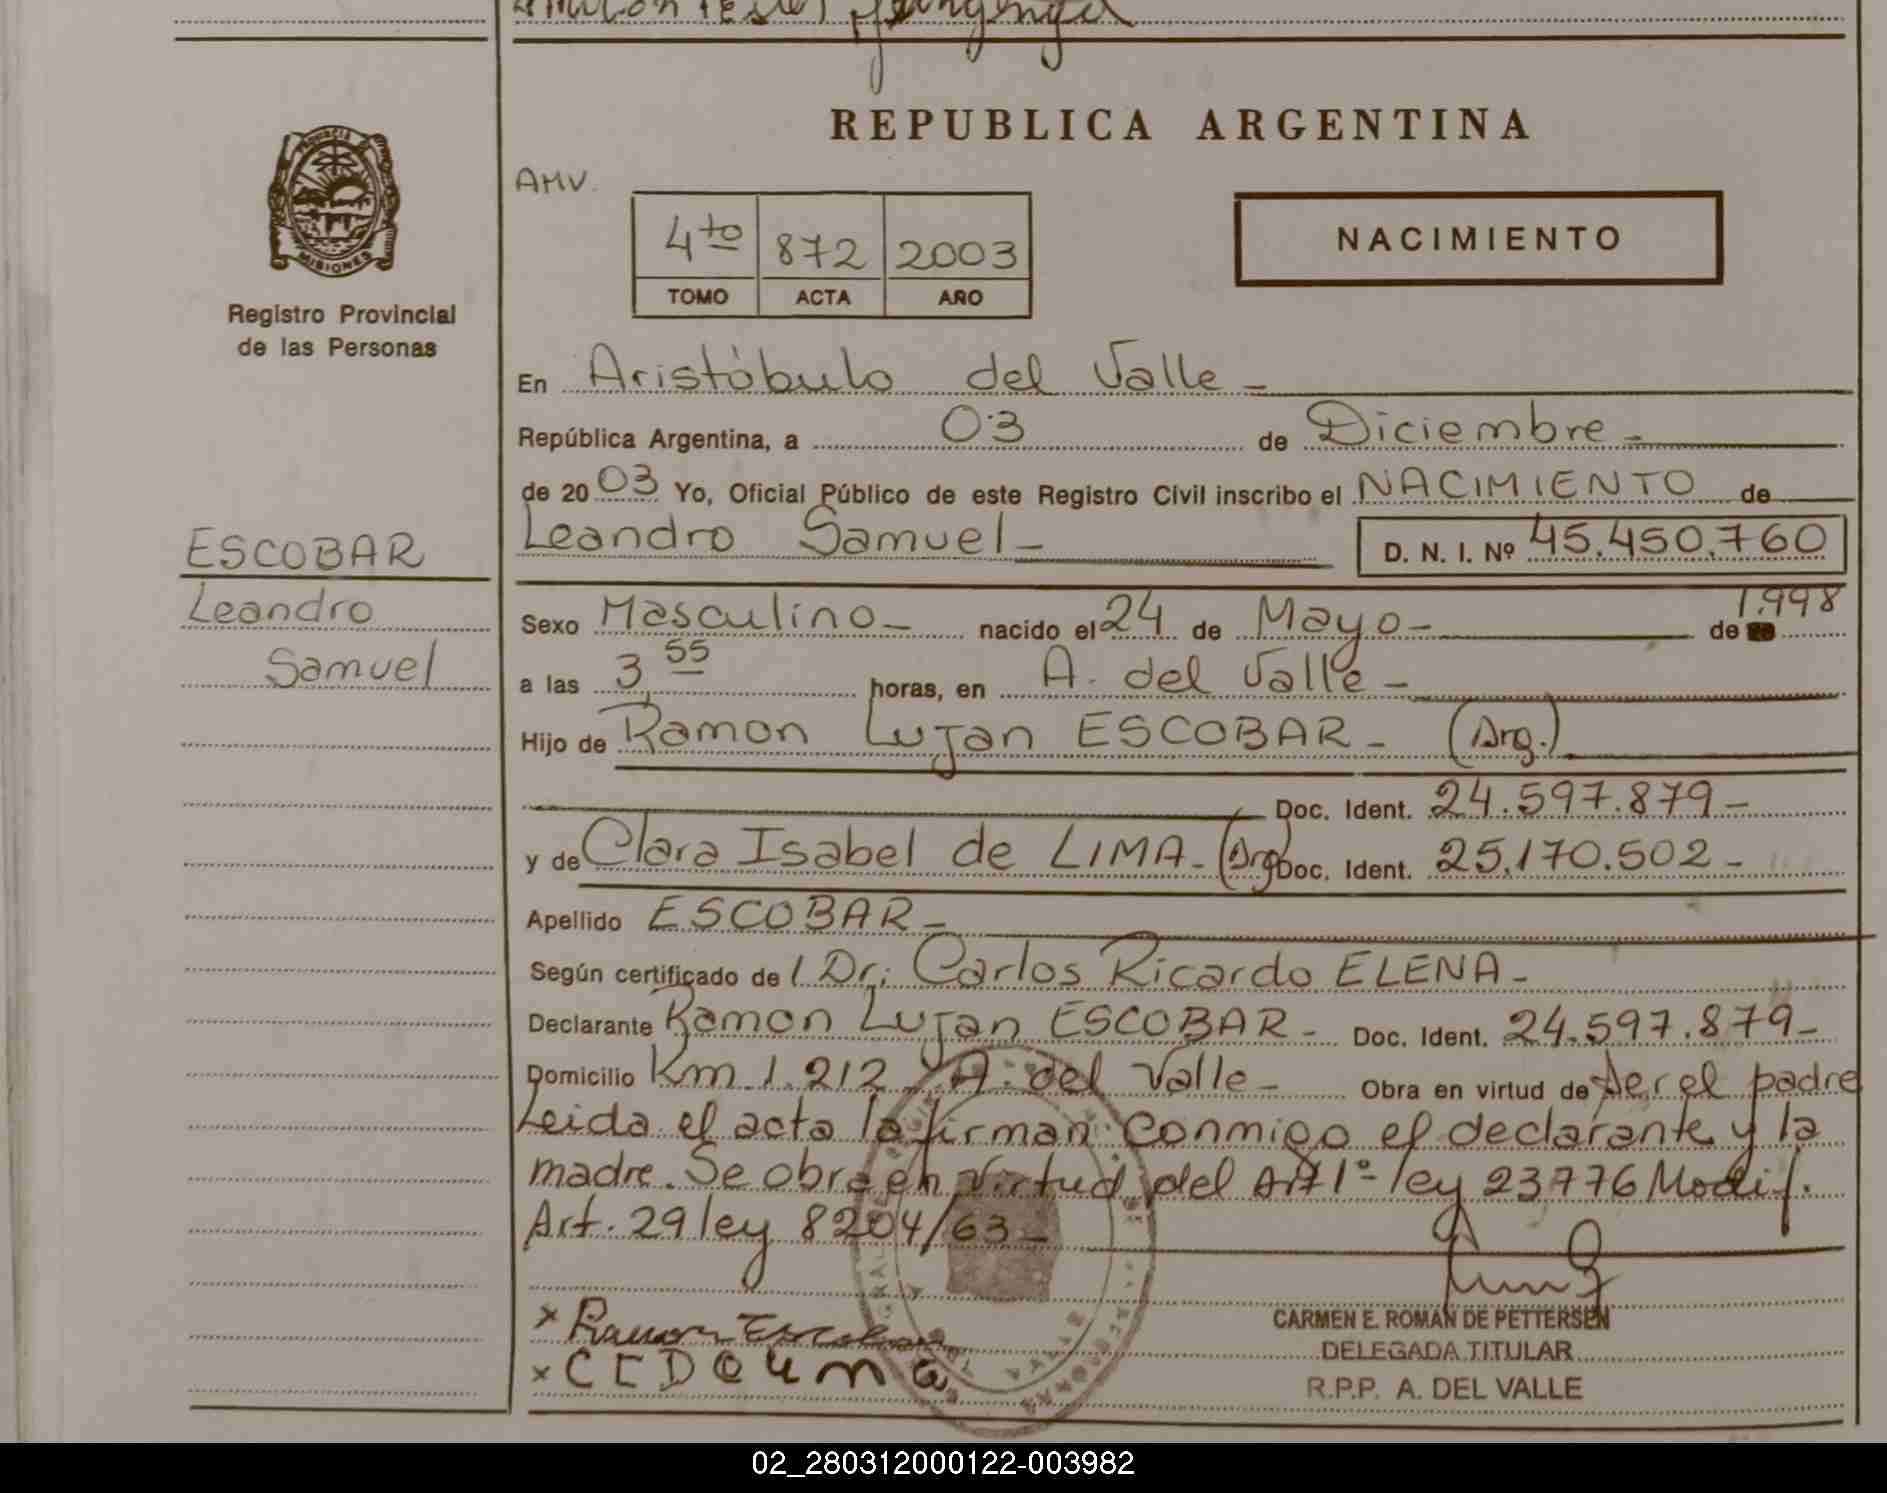 REPUBLICA ARGENTINA
PROVINCIA DE
MISIONES
Registro Provincial
de las Personas
AMV.
4to 872 2003
TOMO ACTA AÑO
NACIMIENTO
En Aristóbulo del Valle -
República Argentina, a 03 de Diciembre -
de 20 03 Yo, Oficial Público de este Registro Civil inscribo el NACIMIENTO de
Leandro Samuel - D. N. I. Nº 45.450.760
ESCOBAR
Leandro
Samuel
Sexo Masculino - nacido el 24 de Mayo - de 1.998
a las 3,55 horas, en A. del Valle -
Hijo de Ramon Lujan ESCOBAR - (Arg.)
Doc. Ident. 24.597.879 -
y de Clara Isabel de LIMA - (Arg) Doc. Ident. 25.170.502 -
Apellido ESCOBAR -
Según certificado de / Dr; Carlos Ricardo ELENA -
Declarante Ramon Lujan ESCOBAR - Doc. Ident. 24.597.879 -
Domicilio Km 1.212 - A. del Valle - Obra en virtud de ser el padre
Leida el acta la firman conmigo el declarante y la
madre. Se obra en virtud del Art 1º ley 23776 Modif.
Art. 29 ley 8204/63 -
x Ramon Escobar
x
CARMEN E. ROMAN DE PETTERSEN
DELEGADA TITULAR
R.P.P. A. DEL VALLE
02_280312000122-003982